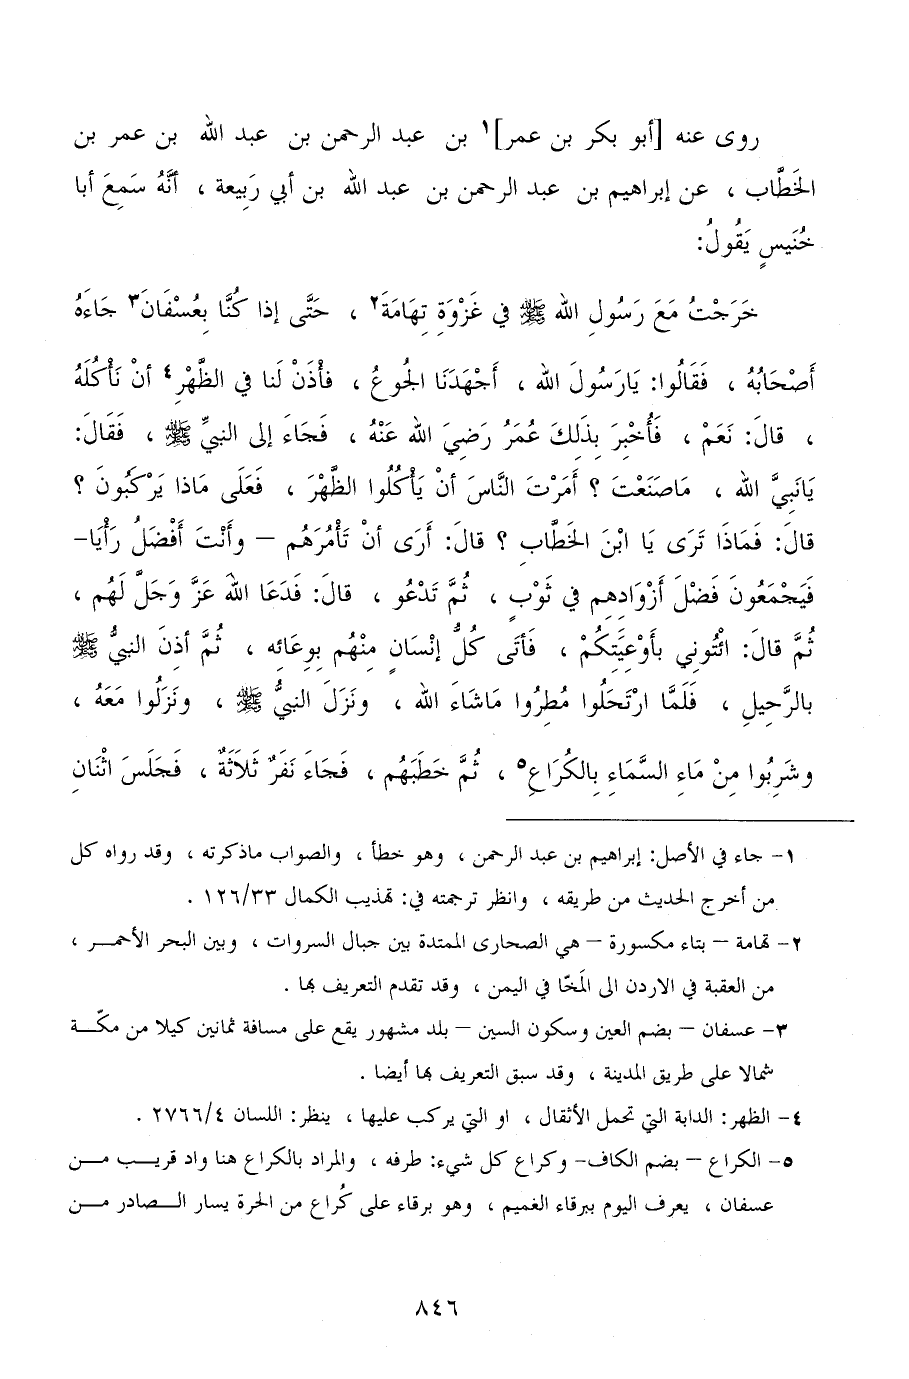 روى عنه [أبو بكر بن عمر]١ بن عبد الرحمن بن عبد الله بن عمر بن
الخَطَّاب ، عن إبراهيم بن عبد الرحمن بن عبد الله بن أبي رَبِيعة ، أنَّهُ سَمِعَ أبا
خُنَيسٍ يَقُولُ:
خَرَجْتُ مَعَ رَسُولِ الله ﷺ في غَزْوَةِ تِهَامَةَ٢ ، حَتَّى إذا كُنَّا بِعُسْفَانَ٣ جاءَهُ
أَصْحَابُهُ ، فَقَالُوا: يَارَسُولَ الله ، أَجْهَدَنَا الجُوعُ ، فأْذَنْ لَنا في الظَّهْرِ٤ أنْ نَأْكُلَهُ
، قالَ: نَعَمْ ، فَأُخْبِرَ بِذَلِكَ عُمَرُ رَضِيَ الله عَنْهُ ، فَجَاءَ إلى النبيِّ ﷺ ، فَقَالَ:
يَانَبِيَّ الله ، مَاصَنَعْتَ ؟ أَمَرْتَ النَّاسَ أنْ يَأْكُلُوا الظَّهْرَ ، فَعَلَى مَاذا يَرْكَبُونَ ؟
قالَ: فَمَاذَا تَرَى يَا ابْنَ الخَطَّابِ ؟ قالَ: أَرَى أنْ تَأْمُرَهُم – وأَنْتَ أَفْضَلُ رَأْيَا-
فَيَجْمَعُونَ فَضْلَ أَزْوَادِهِم في ثَوْبٍ ، ثُمَّ تَدْعُو ، قالَ: فَدَعَا اللهَ عَزَّ وَجَلَّ لَهُم ،
ثُمَّ قالَ: ائْتُونِي بأَوْعِيَتِكُمْ ، فَأَتَى كُلُّ إنْسَانٍ مِنْهُم بِوِعَائِه ، ثُمَّ أذِنَ النبيُّ ﷺ
بالرَّحِيلِ ، فَلَمَّا ارْتَحَلُوا مُطِرُوا مَاشَاءَ الله ، ونَزَلَ النبيُّ ﷺ ، ونَزَلُوا مَعَهُ ،
وشَرِبُوا مِنْ مَاءِ السَّمَاءِ بِالكُرَاعِ٥ ، ثُمَّ خَطَبَهُم ، فَجَاءَ نَفَرٌ ثَلاَثَةٌ ، فَجَلَسَ اثْنَانِ
١- جاء في الأصل: إبراهيم بن عبد الرحمن ، وهو خطأ ، والصواب ماذكرته ، وقد رواه كل
من أخرج الحديث من طريقه ، وانظر ترجمته في: تهذيب الكمال ١٢٦/٣٣ .
٢- تهامة – بتاء مكسورة – هي الصحارى الممتدة بين جبال السروات ، وبين البحر الأحمـــر ،
من العقبة في الاردن الى المَخّا في اليمن ، وقد تقدم التعريف بها .
٣- عسفان – بضم العين وسكون السين – بلد مشهور يقع على مسافة ثمانين كيلا من مكّـــة
شمالا على طريق المدينة ، وقد سبق التعريف بها أيضا .
٤- الظهر: الدابة التي تحمل الأثقال ، او التي يركب عليها ، ينظر: اللسان ٢٧٦٦/٤ .
٥- الكراع – بضم الكاف- وكراع كل شيء: طرفه ، والمراد بالكراع هنا واد قريـــب مـــن
عسفان ، يعرف اليوم ببرقاء الغميم ، وهو برقاء على كُراع من الحرة يسار الـــصادر مـــن
٨٤٦